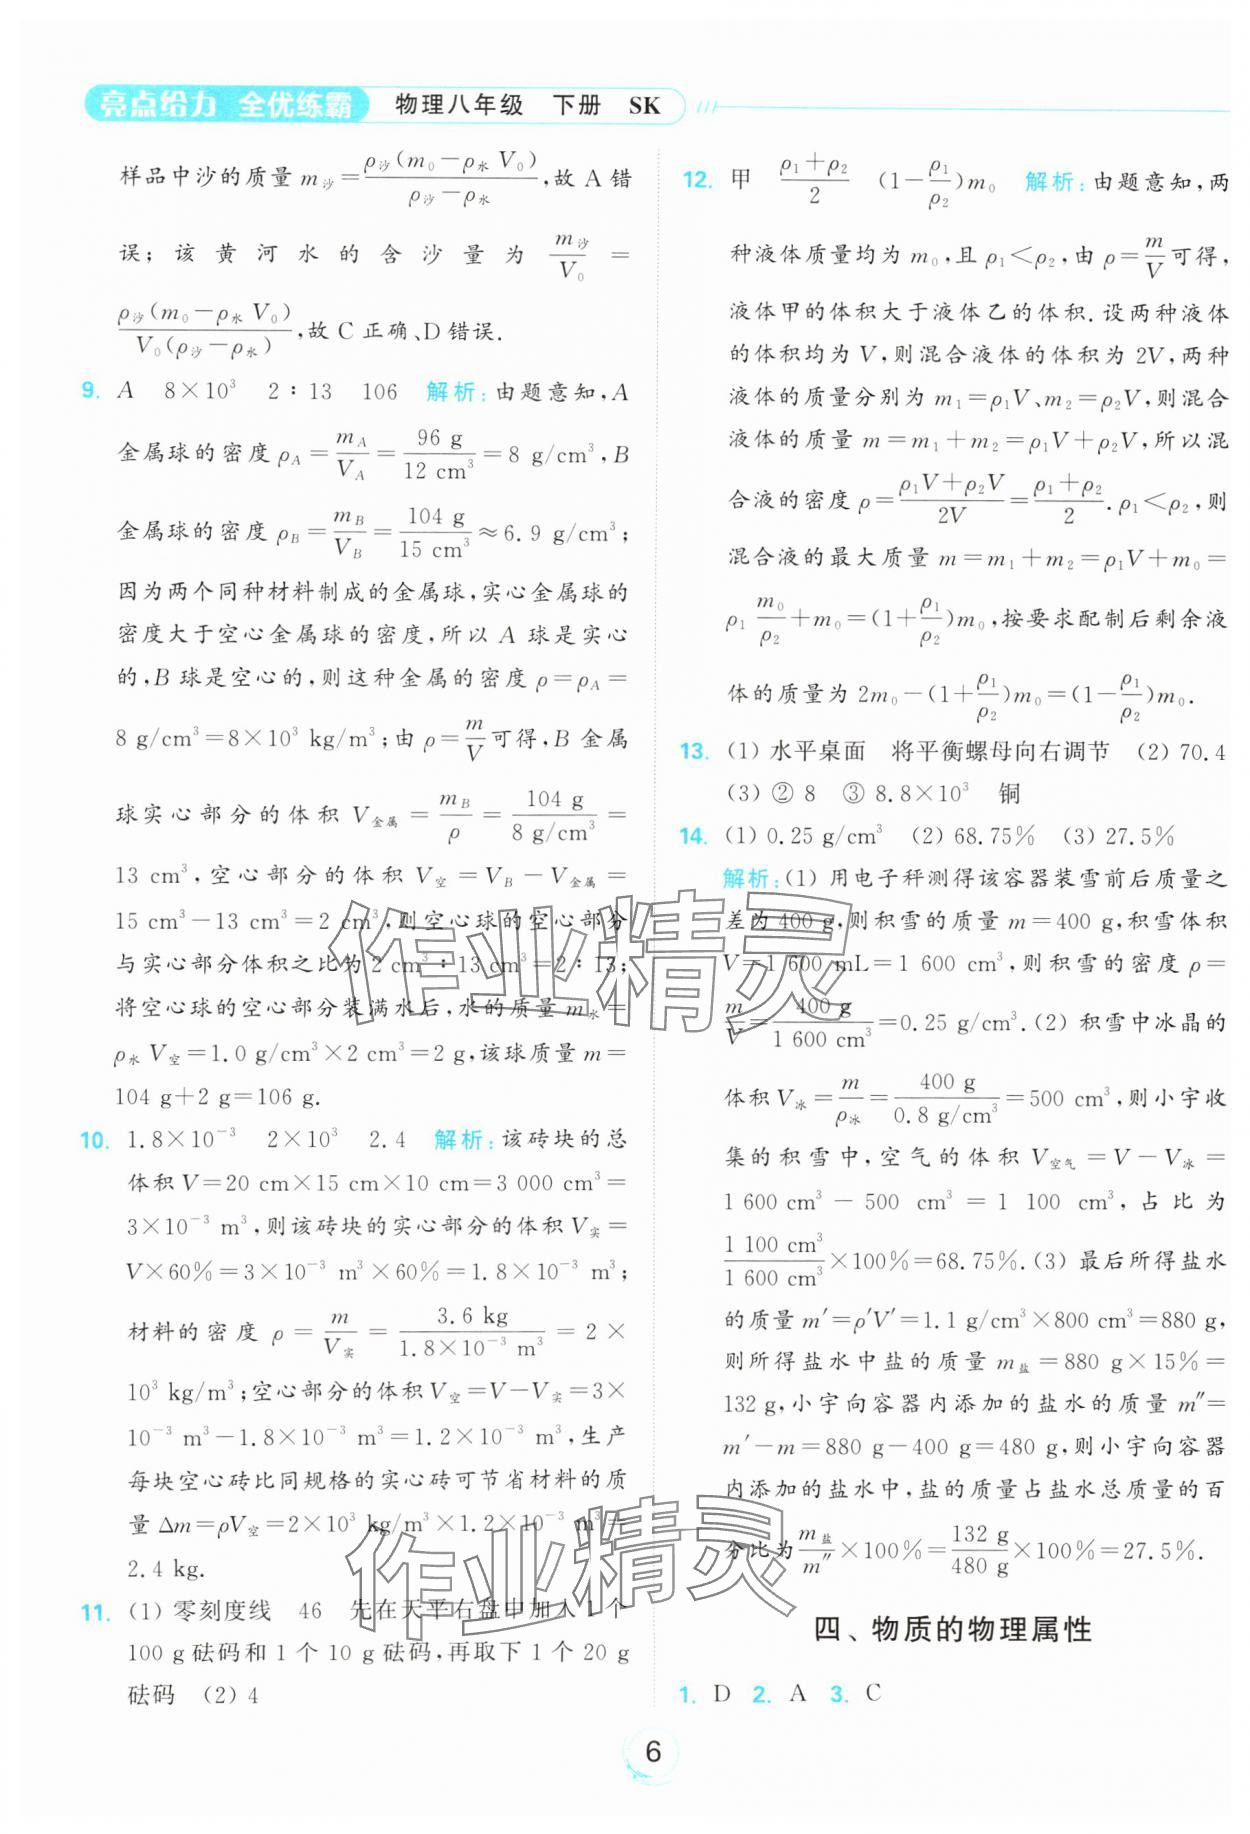 亮点给力 全优练霸 物理八年级 下册 SK
样品中沙的质量 m沙=ρ沙(m₀-ρ水 V₀)/(ρ沙-ρ水),故 A 错
误;该黄河水的含沙量为 m沙/V₀ =
ρ沙(m₀-ρ水 V₀)/V₀(ρ沙-ρ水),故 C 正确、D 错误.
9. A 8×10³ 2∶13 106 解析:由题意知,A
金属球的密度 ρA=mA/VA=96 g/12 cm³=8 g/cm³,B
金属球的密度 ρB=mB/VB=104 g/15 cm³≈6.9 g/cm³;
因为两个同种材料制成的金属球,实心金属球的
密度大于空心金属球的密度,所以 A 球是实心
的,B 球是空心的,则这种金属的密度 ρ=ρA=
8 g/cm³=8×10³ kg/m³;由 ρ=m/V可得,B 金属
球实心部分的体积 V金属=mB/ρ=104 g/8 g/cm³=
13 cm³,空心部分的体积 V空=VB-V金属=
15 cm³-13 cm³=2 cm³,则空心球的空心部分
与实心部分体积之比为 2 cm³∶13 cm³=2∶13;
将空心球的空心部分装满水后,水的质量 m水=
ρ水 V空=1.0 g/cm³×2 cm³=2 g,该球质量 m=
104 g+2 g=106 g.
10. 1.8×10⁻³ 2×10³ 2.4 解析:该砖块的总
体积 V=20 cm×15 cm×10 cm=3 000 cm³=
3×10⁻³ m³,则该砖块的实心部分的体积 V实=
V×60%=3×10⁻³ m³×60%=1.8×10⁻³ m³;
材料的密度 ρ=m/V实=3.6 kg/1.8×10⁻³ m³=2×
10³ kg/m³;空心部分的体积 V空=V-V实=3×
10⁻³ m³-1.8×10⁻³ m³=1.2×10⁻³ m³,生产
每块空心砖比同规格的实心砖可节省材料的质
量 Δm=ρV空=2×10³ kg/m³×1.2×10⁻³ m³=
2.4 kg.
11. (1) 零刻度线 46 先在天平右盘中加入 1 个
100 g 砝码和 1 个 10 g 砝码,再取下 1 个 20 g
砝码 (2) 4
12. 甲 (ρ₁+ρ₂)/2 (1-ρ₁/ρ₂)m₀ 解析:由题意知,两
种液体质量均为 m₀,且 ρ₁<ρ₂,由 ρ=m/V可得,
液体甲的体积大于液体乙的体积.设两种液体
的体积均为 V,则混合液体的体积为 2V,两种
液体的质量分别为 m₁=ρ₁V、m₂=ρ₂V,则混合
液体的质量 m=m₁+m₂=ρ₁V+ρ₂V,所以混
合液的密度 ρ=(ρ₁V+ρ₂V)/2V=(ρ₁+ρ₂)/2.ρ₁<ρ₂,则
混合液的最大质量 m=m₁+m₂=ρ₁V+m₀=
ρ₁ m₀/ρ₂+m₀=(1+ρ₁/ρ₂)m₀,按要求配制后剩余液
体的质量为 2m₀-(1+ρ₁/ρ₂)m₀=(1-ρ₁/ρ₂)m₀.
13. (1) 水平桌面 将平衡螺母向右调节 (2) 70.4
(3) ② 8 ③ 8.8×10³ 铜
14. (1) 0.25 g/cm³ (2) 68.75% (3) 27.5%
解析:(1) 用电子秤测得该容器装雪前后质量之
差为 400 g,则积雪的质量 m=400 g,积雪体积
V=1 600 mL=1 600 cm³,则积雪的密度 ρ=
m/V=400 g/1 600 cm³=0.25 g/cm³.(2) 积雪中冰晶的
体积 V冰=m/ρ冰=400 g/0.8 g/cm³=500 cm³,则小宇收
集的积雪中,空气的体积 V空气=V-V冰=
1 600 cm³-500 cm³=1 100 cm³,占比为
1 100 cm³/1 600 cm³×100%=68.75%.(3) 最后所得盐水
的质量 m′=ρ′V′=1.1 g/cm³×800 cm³=880 g,
则所得盐水中盐的质量 m盐=880 g×15%=
132 g,小宇向容器内添加的盐水的质量 m″=
m′-m=880 g-400 g=480 g,则小宇向容器
内添加的盐水中,盐的质量占盐水总质量的百
分比为m盐/m″×100%=132 g/480 g×100%=27.5%.
四、物质的物理属性
1. D 2. A 3. C
作业精灵
作业精灵
6